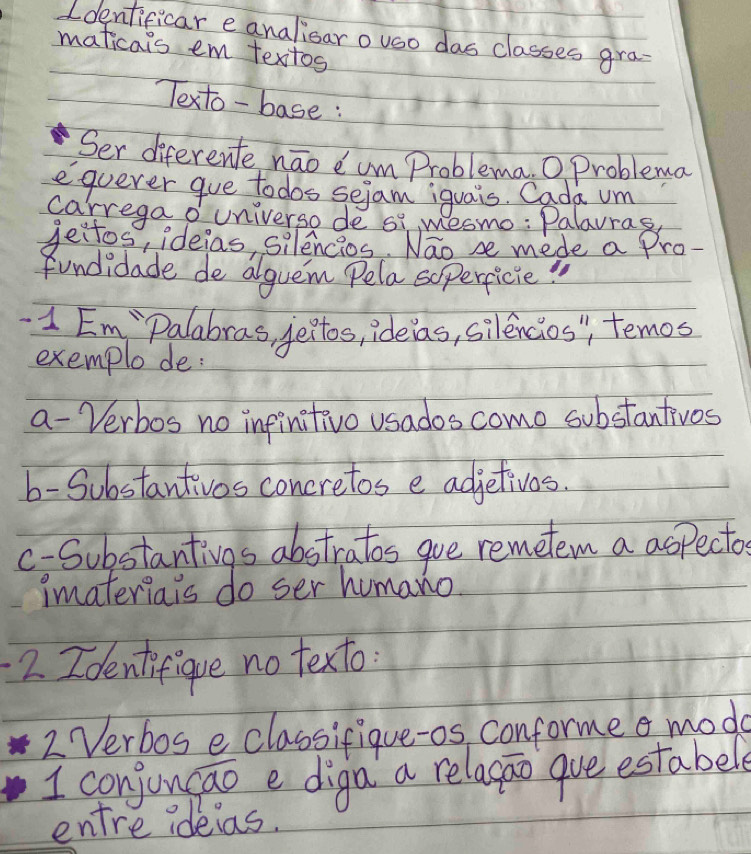 Identificar e analisar o uso das classes gra-
maticais em textos
Texto-base:
"Ser diferente não é um Problema. O Problema
é querer que todos sejam iguais. Cada um
carrega o universo de si mesmo: Palavras,
jeitos, ideias, silêncios. Não se mede a Pro-
fundidade de alguém Pela superficie."
-1 Em "Palabras, jeitos, ideias, silêncios", temos
exemplo de:
a-Verbos no infinitivo usados como substantivos
b-Substantivos concretos e adjetivos.
c-Substantivos abstratos que remetem a aspectos
imateriais do ser humano.
-2 Identifique no texto:
2 Verbos e classifique-os conforme o modo
1 conjunção e diga a relação que estabele
entre ideias.